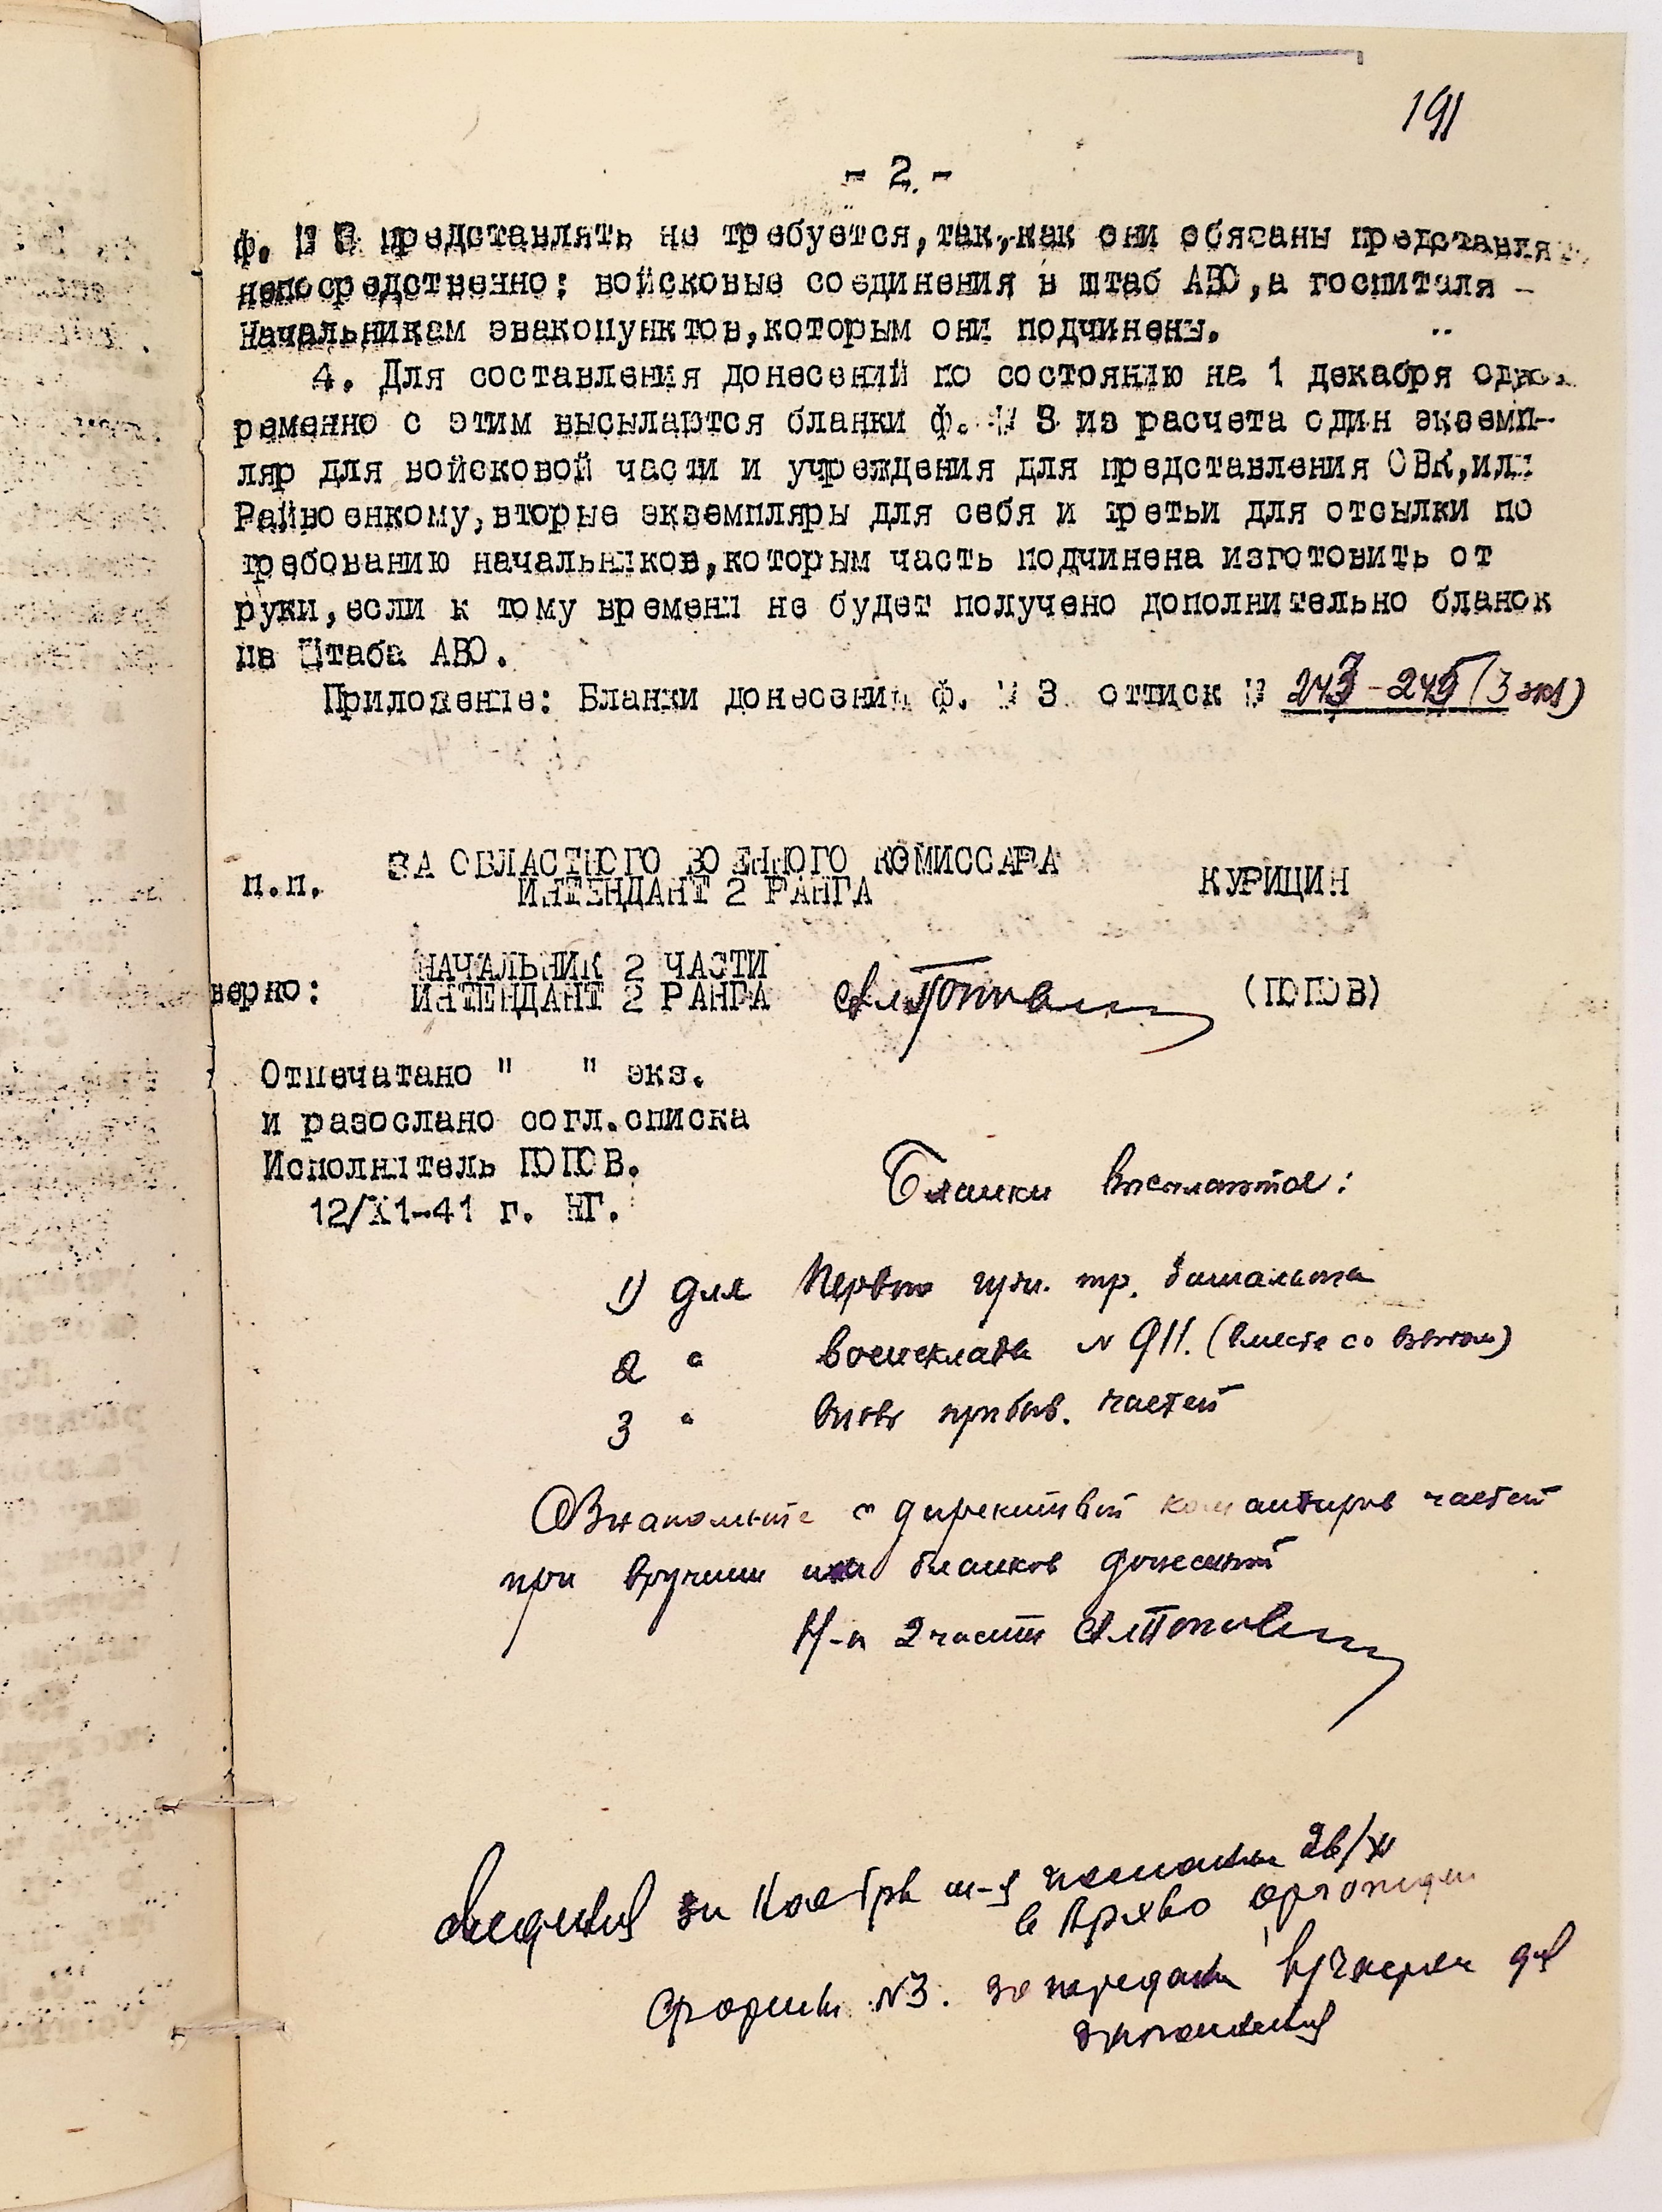 191
- 2. -
ф. № 3 представлять не требуется, так,-как они обязаны представля
непосредственно: войсковые соединения в штаб АВО, а госпиталя -
начальникам эвакопунктов, которым они подчинены.
4. Для составления донесений по состоянию на 1 декабря одно
ременно с этим высылаются бланки ф. № 3 из расчета один экземп-
ляр для войсковой части и учреждения для представления ОВК, или
Райвоенкому, вторые экземпляры для себя и третьи для отсылки по
требованию начальников, которым часть подчинена изготовить от
руки, если к тому времени не будет получено дополнительно бланок
из Штаба АВО.
Приложение: Бланки донесений ф. № 3 оттиск № 243-245 (3 экз)
ЗА ОБЛАСТНОГО ВОЕННОГО КОМИССАРА
п.п. ИНТЕНДАНТ 2 РАНГА КУРИЦИН
НАЧАЛЬНИК 2 ЧАСТИ
верно: ИНТЕНДАНТ 2 РАНГА (ПОПОВ)
Отпечатано " " экз.
и разослано согл.списка
Исполнитель ПОПОВ.
12/Х1-41 г. НГ.
Бланки высылаются:
1) для Первого тр. батальона
2 " военсклада № 911. (вместе со)
3 " вновь прибыв. частей
Ознакомьте с директивой командиров частей
при вручении им бланков донесений
Н-к 2 части
Сведения за Ноябрь м-ц 26/XI
в
Форма №3. для